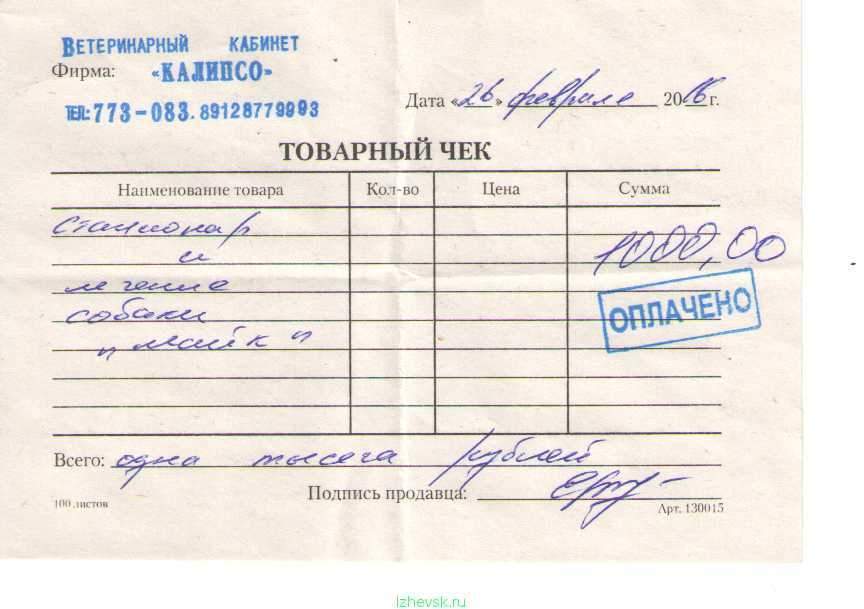 ВЕТЕРИНАРНЫЙ КАБИНЕТ
Фирма: «КАЛИПСО»
ТЕЛ: 773-083. 89128779993
Дата «26» февраля 2016 г.
ТОВАРНЫЙ ЧЕК
Наименование товара Кол-во Цена Сумма
стационар
и 1000,00
лечение
собаки ОПЛАЧЕНО
"Майк"
Всего: одна тысяча рублей
Подпись продавца:
100 листов Арт. 130015
Izhevsk.ru